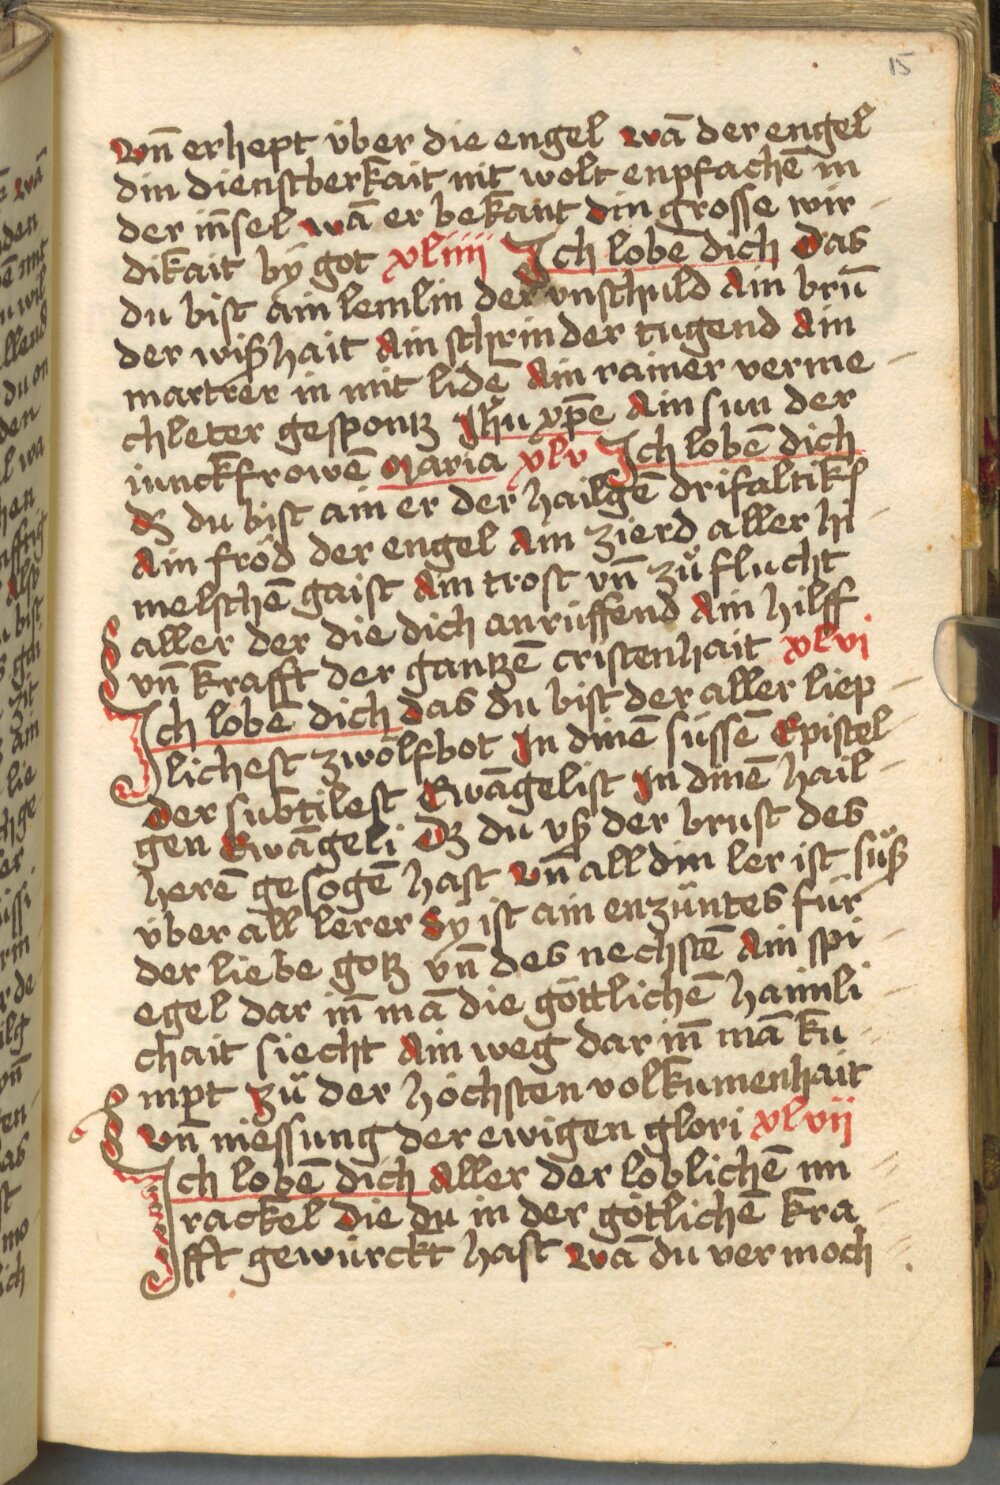 15
Vn̄ erhept v́ber die engel wā der engel
din dienstberkait nit wolt enpfachē in
der in̄sel wā er bekant din grosse wir
dikait bÿ got xliiii Ich lobe dich Das
du bist ain lemlin der vnschuld Ain brū
der wiſßhait Ain schrin der tugend Ain
martrer in mit lidē Ain rainer verme
chleter gespontz Ihū xp̄e Ain sun der
iunckfrowē Maria xlv Ich lobē dich
dz du bist ain er der hailgē drifaltik
Ain fröd der engel Ain zierd aller hi
melschē gaist Ain trost vn̄ zůflucht
aller der die dich anrüffend Ain hilff
vn̄ krafft der gantzē cristenhait xlvi
Ich lobe dich das du bist der aller liep
lichest zwölfbot In dinē süssē Epistel
Der subtilest Ewāgelist In dinē hail
gen Ewāgeli Dz du vsß der brust des
herē gesogē hast Vn̄ all din ler ist süß
v́ber all lerer Sy ist ain enzüntes für
der liebe gotz vn̄ des nechstē Ain spi
egel dar in̄ mā die göttlichē haimli
chait siecht Ain weg dar in̄ mā ku
mpt Zů der höchsten volkumenhait
Vn̄ niessung der ewigen glori xlvii
Ich lobē dich Aller der loblichē mi
rackel Die du in der götlichē kra
fft gewürckt hast Wā du vermoch